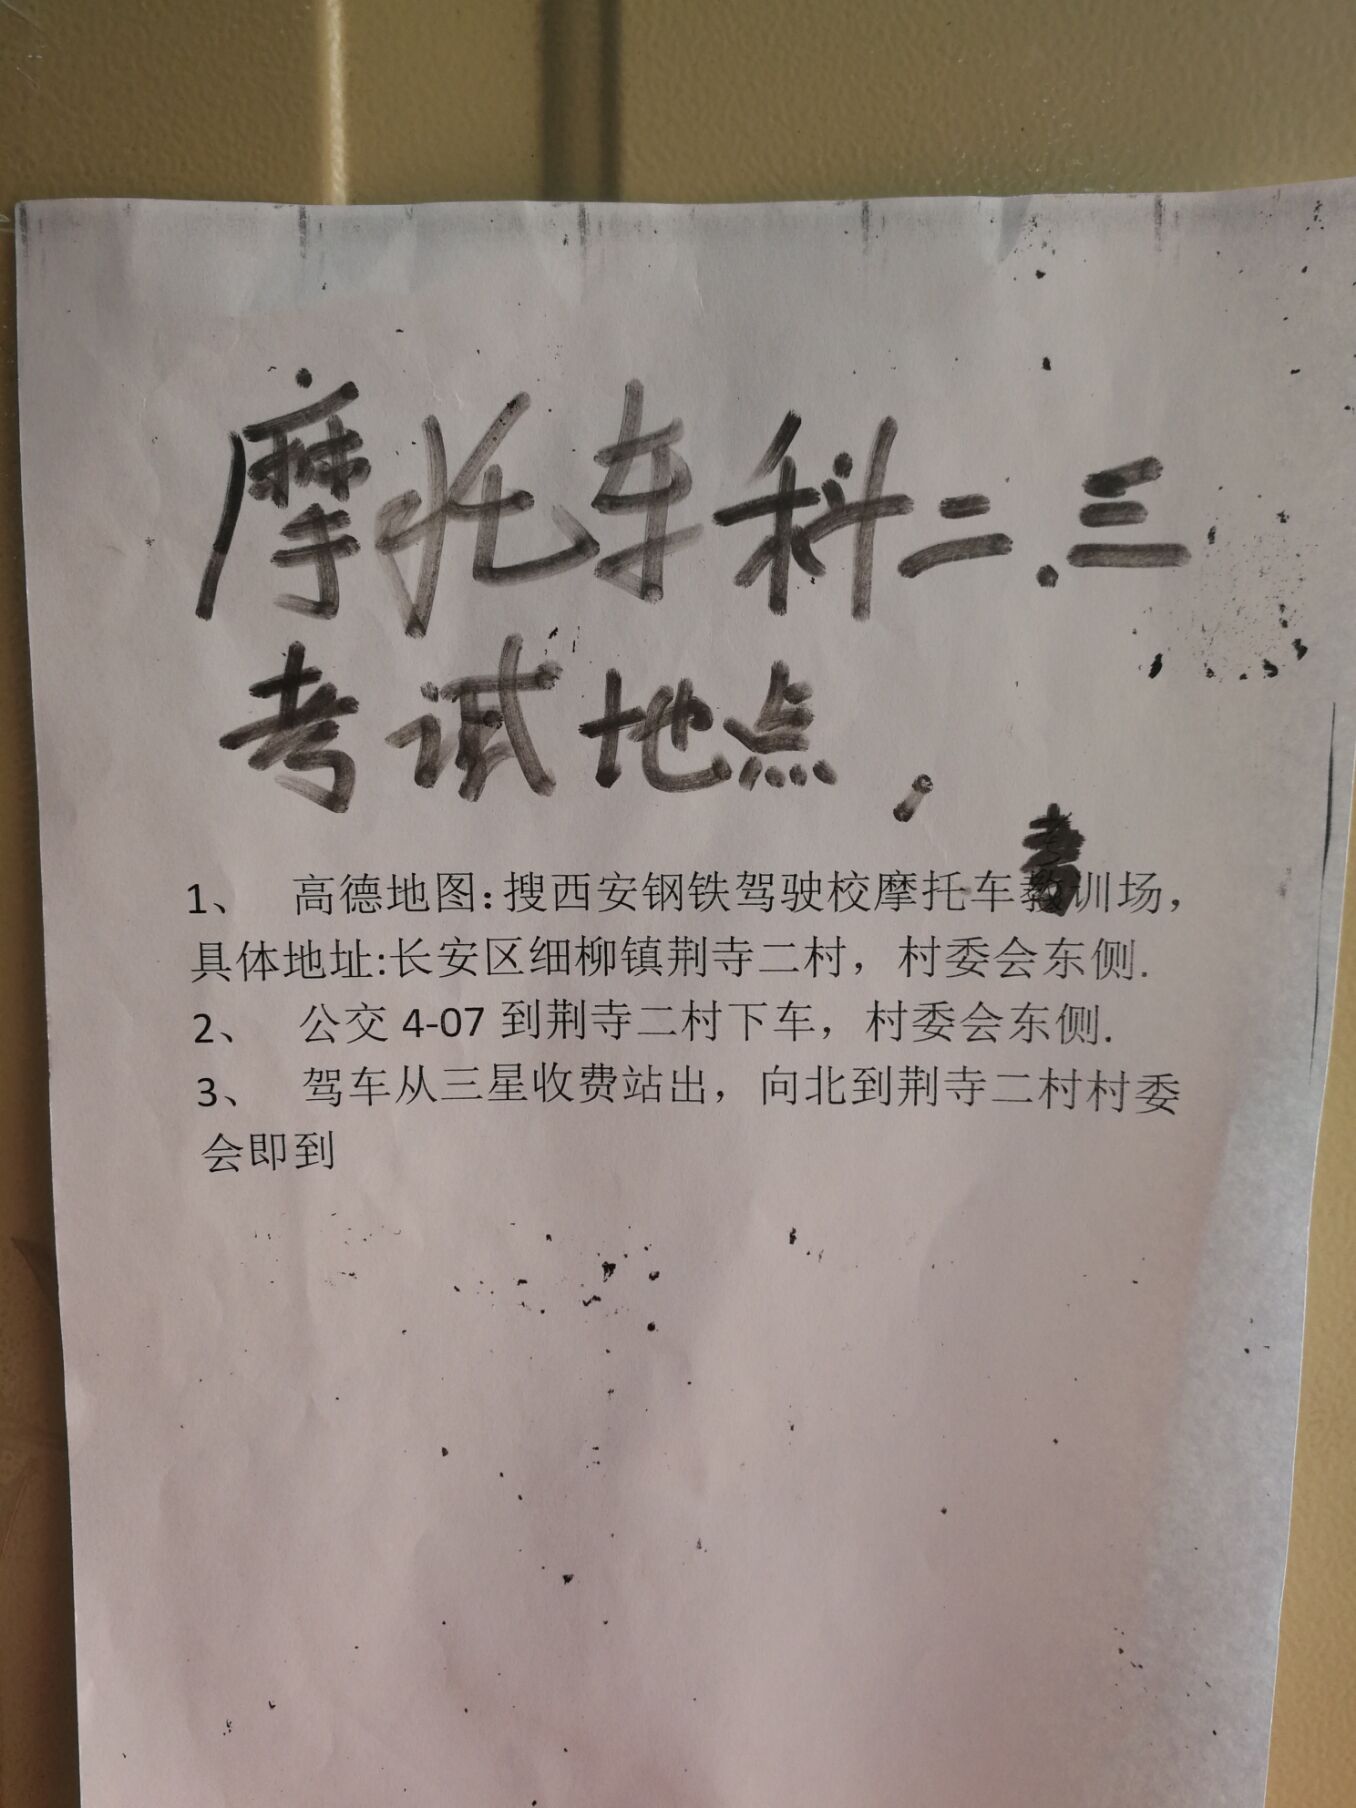 摩托车科二.三
考试地点,
考
1、 高德地图:搜西安钢铁驾驶校摩托车教训场，
具体地址:长安区细柳镇荆寺二村，村委会东侧.
2、 公交 4-07 到荆寺二村下车，村委会东侧.
3、 驾车从三星收费站出，向北到荆寺二村村委
会即到